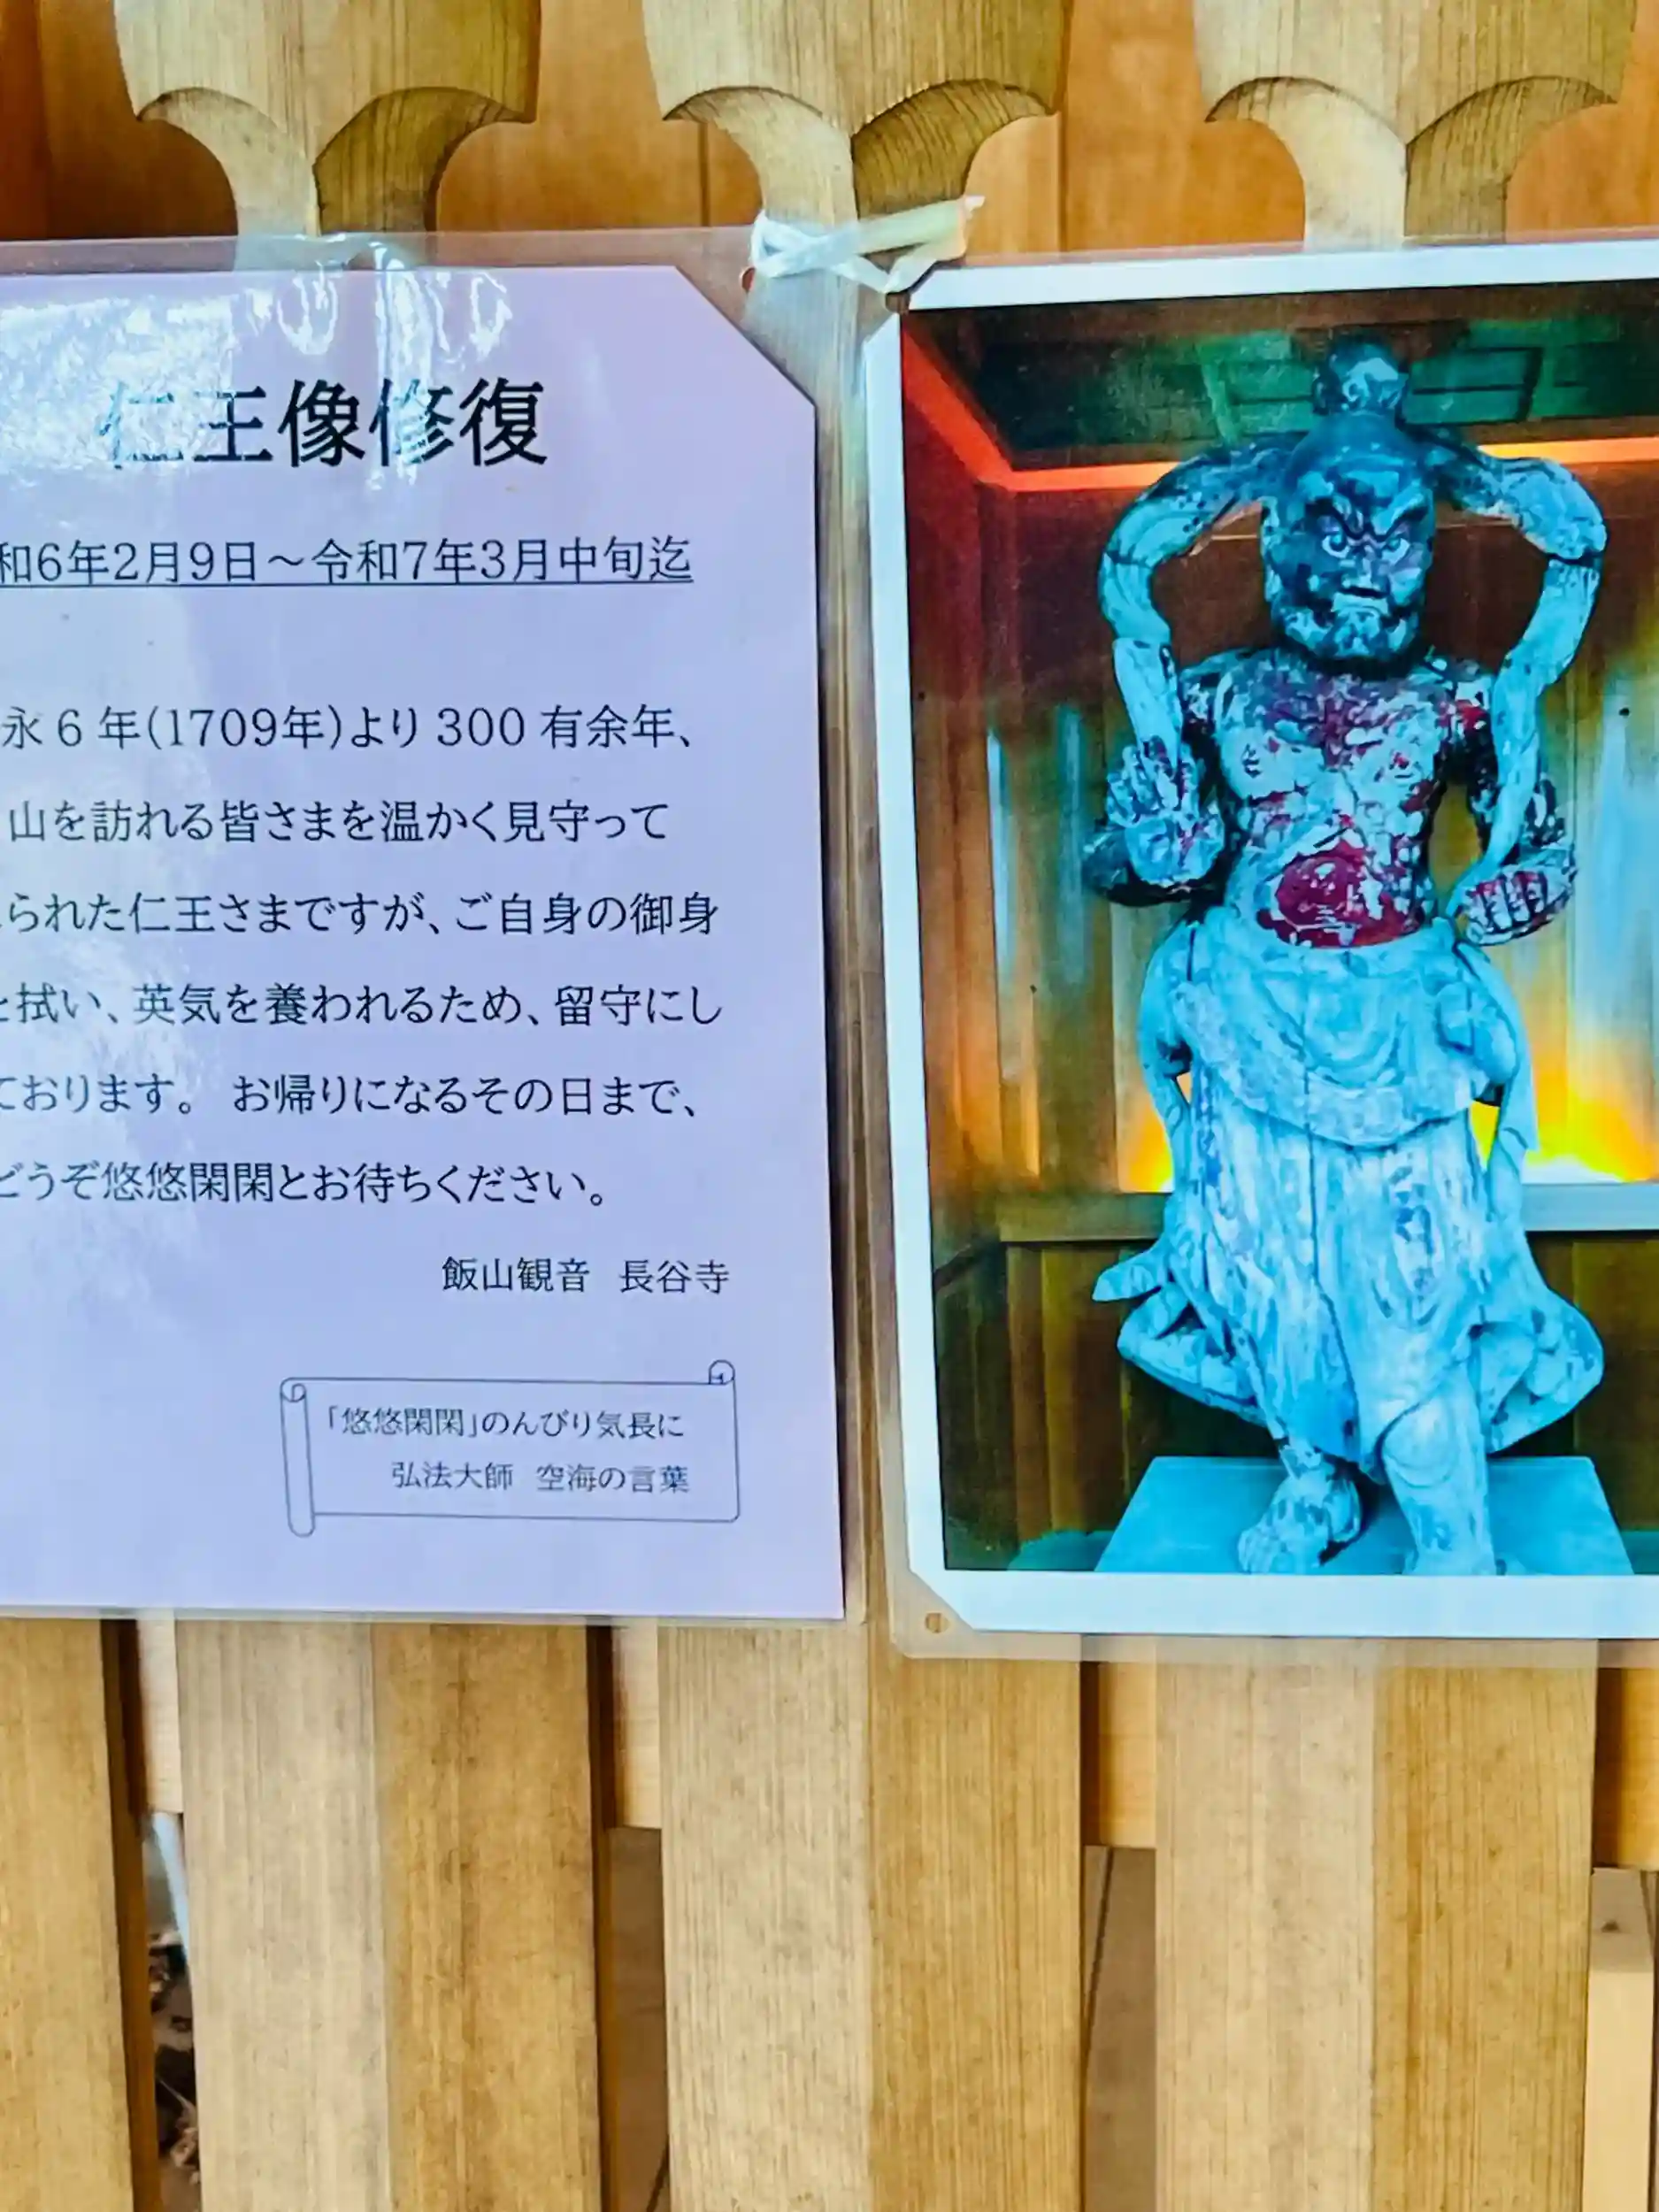 仁王像修復
和6年2月9日～令和7年3月中旬迄
永6年(1709年)より300有余年、
山を訪れる皆さまを温かく見守って
られた仁王さまですが、ご自身の御身
と拭い、英気を養われるため、留守にし
ております。 お帰りになるその日まで、
どうぞ悠悠閑閑とお待ちください。
飯山観音 長谷寺
「悠悠閑閑」のんびり気長に
弘法大師 空海の言葉